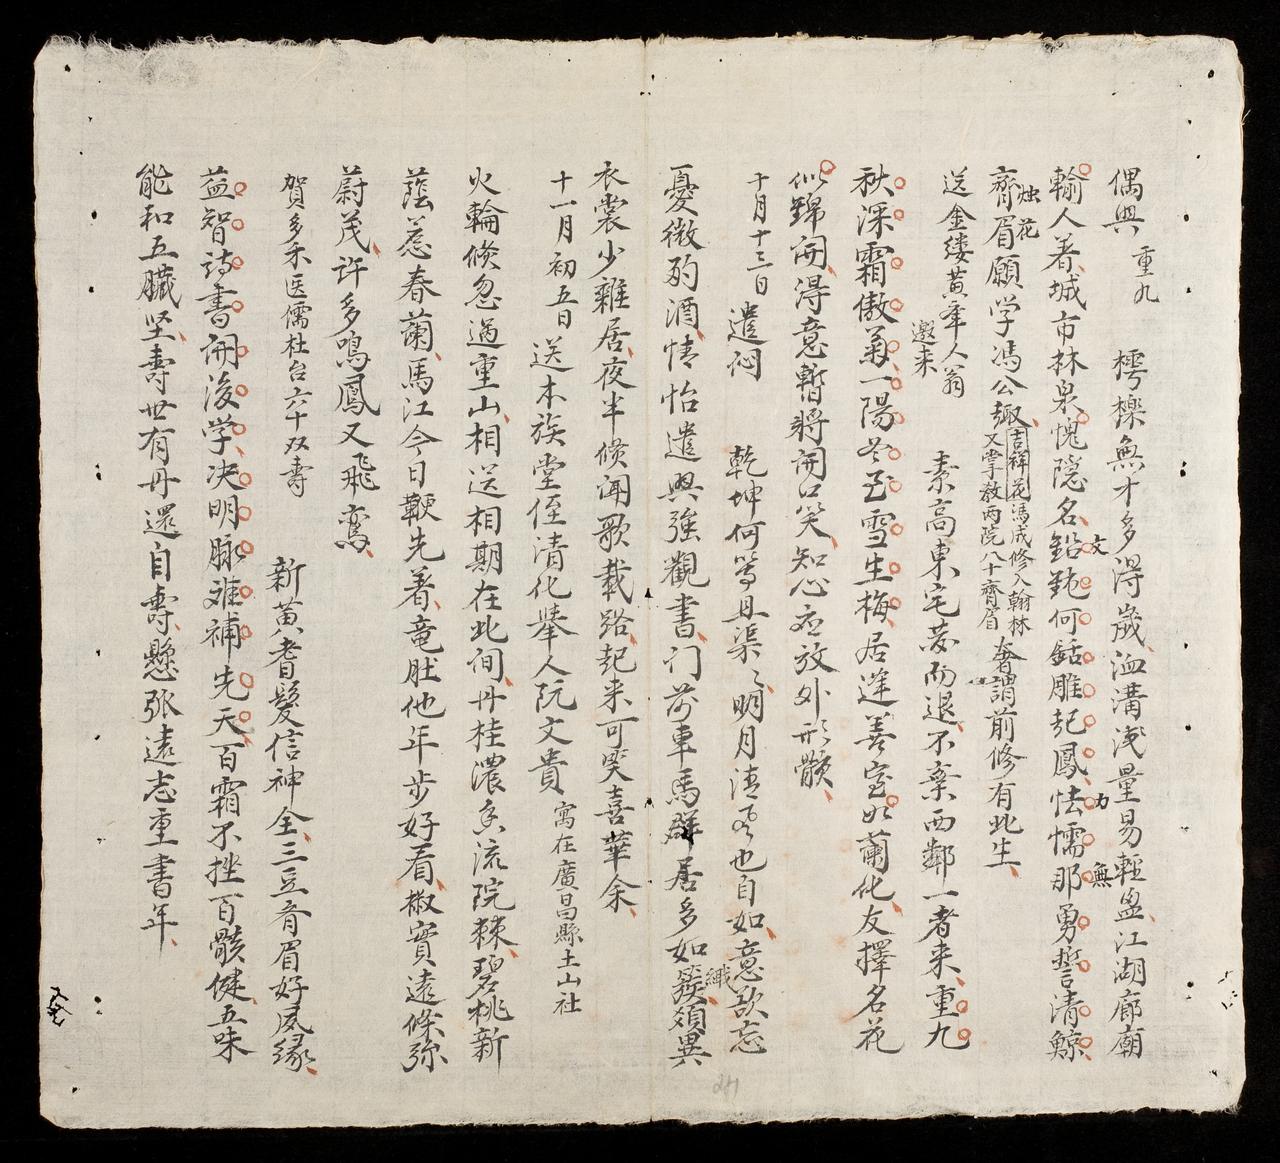 偶興 重九 樗櫟無才多得歲洫溝淺量易輕盈江湖廊廟
輸人著城市林泉愧隐名鉛鈍何銛雕起鳳怯懦那勇誓清鯨
文 力 無
齊眉願学馮公趣吉祥花馮成修入翰林
又掌教两院八十齊眉 前修有此生
烛花
送金缕黄
邀来
素高東宅夢而退不棄西鄰一者来重九
秋深霜傲菊一陽冬至雪生梅居逢善室如蘭化友擇名花
似錦開得意暫將開口笑知心应放外形骸
十月十三日 遣闷 乾坤何等且渠々明月清 也自如意欲忘
憂微酌酒情怡遣興強觀書门前車馬群居多如 領異
衣裳少雜居夜半倏闻歌載路起来可笑喜華余
十一月初五日 送本族堂侄清化舉人阮文貴 寓在廣昌縣土山社
火輪倏忽過重山相送相期在此间丹桂濃 流院棘碧桃新
蔭惹春蘭馬江今日鞭先着竜肚他年步好看椒實遠條弥
蔚茂许多鳴鳳又飛鸞
賀多禾医儒杜台六十双壽 新黄耆髮信神全三豆齊眉好夙緣
益智詩書開後学决明脉 補先天百霜不挫百骸健五味
能和五臟坚壽世有丹還自壽懸張遠志重書年